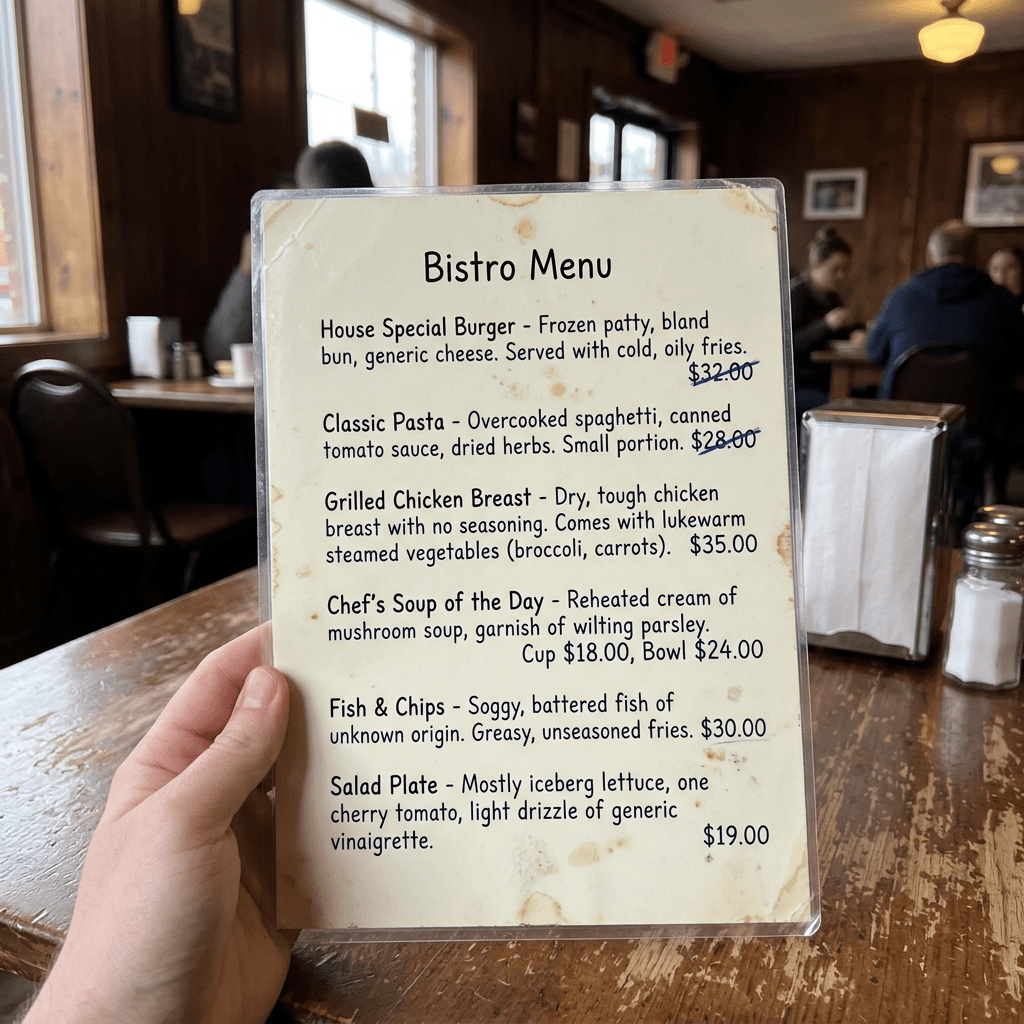 Bistro Menu
House Special Burger - Frozen patty, bland
bun, generic cheese. Served with cold, oily fries.
$32.00
Classic Pasta - Overcooked spaghetti, canned
tomato sauce, dried herbs. Small portion. $28.00
Grilled Chicken Breast - Dry, tough chicken
breast with no seasoning. Comes with lukewarm
steamed vegetables (broccoli, carrots). $35.00
Chef's Soup of the Day - Reheated cream of
mushroom soup, garnish of wilting parsley.
Cup $18.00, Bowl $24.00
Fish & Chips - Soggy, battered fish of
unknown origin. Greasy, unseasoned fries. $30.00
Salad Plate - Mostly iceberg lettuce, one
cherry tomato, light drizzle of generic
vinaigrette. $19.00